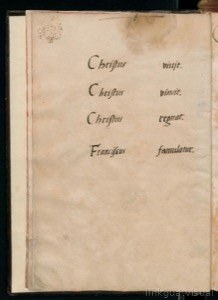 Christus viuit.
Christus vincit.
Christus regnat.
Franciscus famulatur.